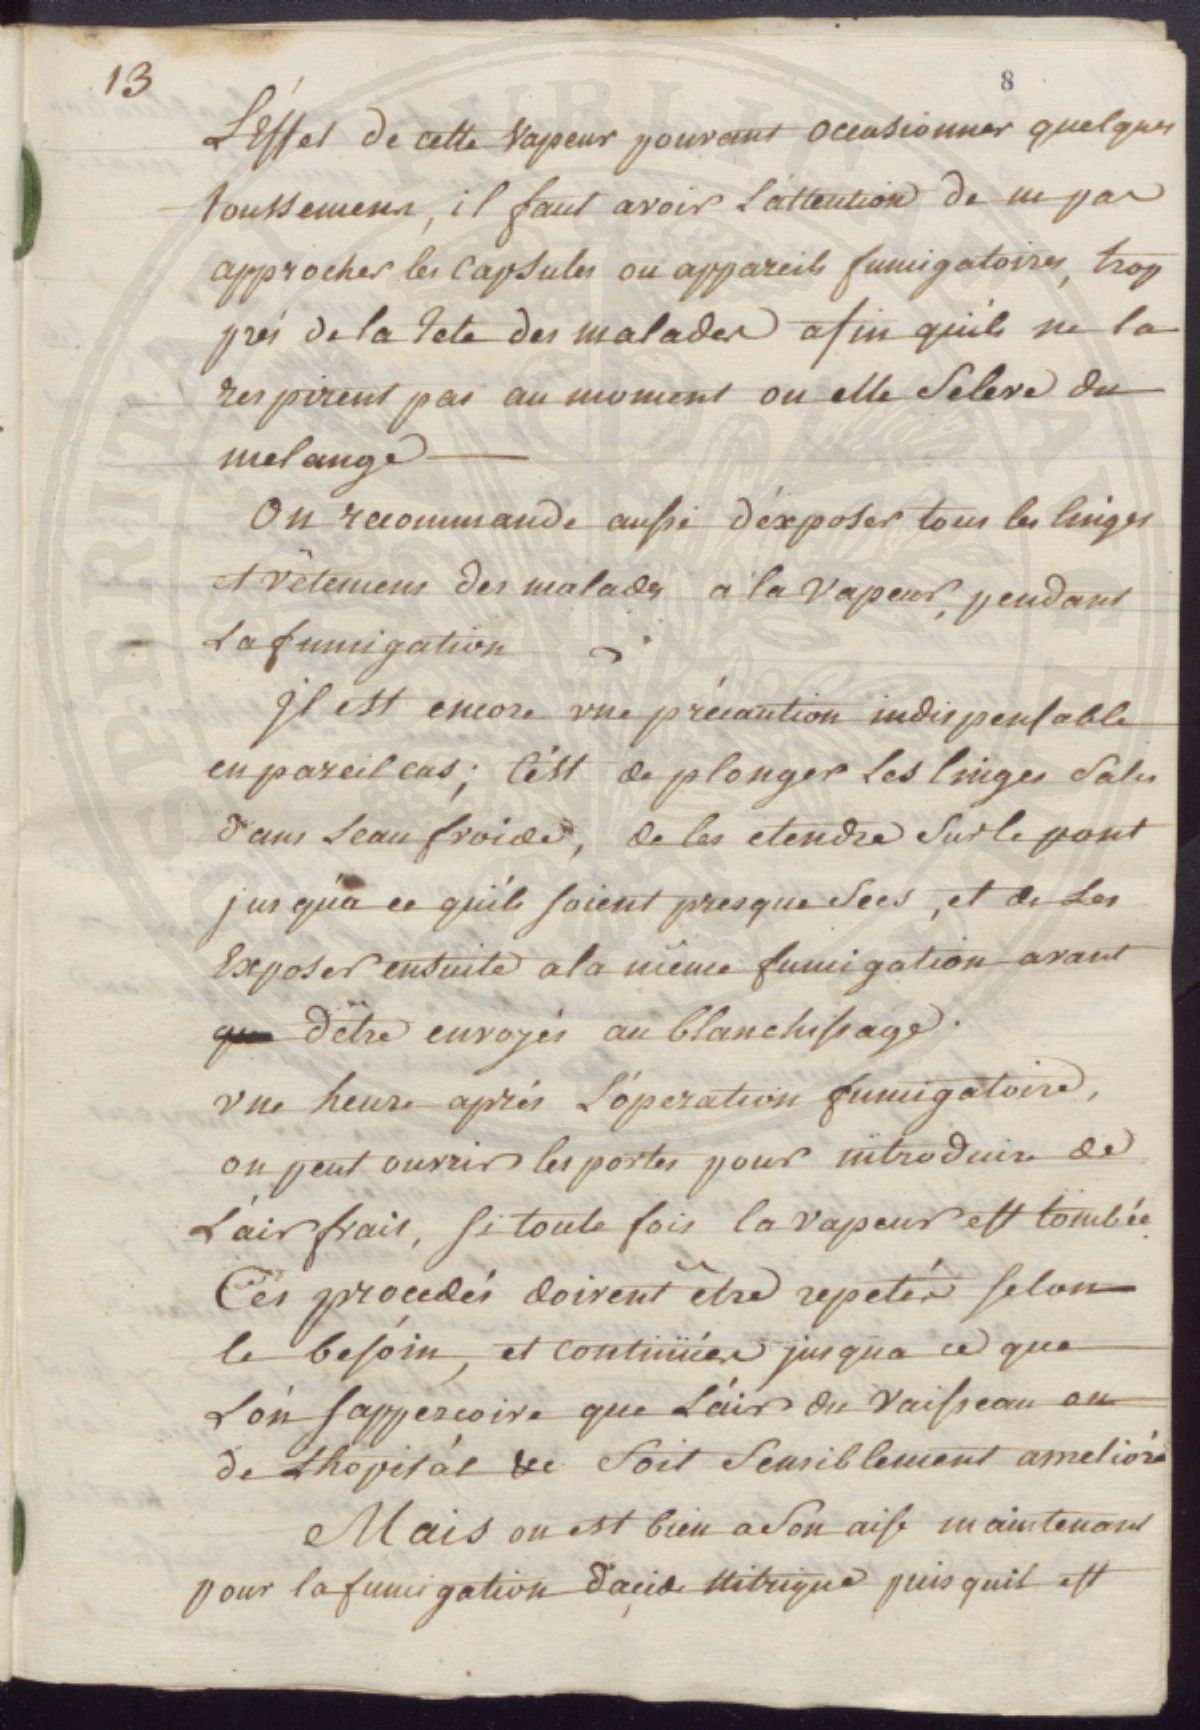 13
8
L'Effet de cette Vapeur pouvant occasionner quelques
toussemens, il faut avoir L'attention de ne pas
approcher les Capsules ou appareils fumigatoires, trop
prés de la tete des malades afin quils ne la
respirent pas au moment ou elle S'eleve du
melange
On recommande aussi d'éxposer tous les linges
et vêtemens des malades a la vapeur, pendant
La fumigation
Jl est encore vne précaution indispensable
en pareil cas; C'est de plonger Les linges Sales
dans L'eau froide, de les etendre Sur le pont
jusqu'a ce qu'ils soient presque Secs, et de Les
Exposer ensuite a la même fumigation avant
que d'être envoyés au blanchissage.
vne heure aprés L'óperation fumigatoire,
on peut ouvrir les portes pour introduire de
L'air frais, Si toute fois la vapeur est tombée
Ces procedés doivent être repetés selon
le besóin, et continüés jusqua ce que
L'ón sapperçoive que L'air du Vaisseau ou
de Lhopitál &c Soit Sensiblement amelioré
Mais on est bien a Son aise maintenant
pour la fumigation d'acide Nitrique puis quil est
PROSPERITATI PUBLICAE AUGENDAE